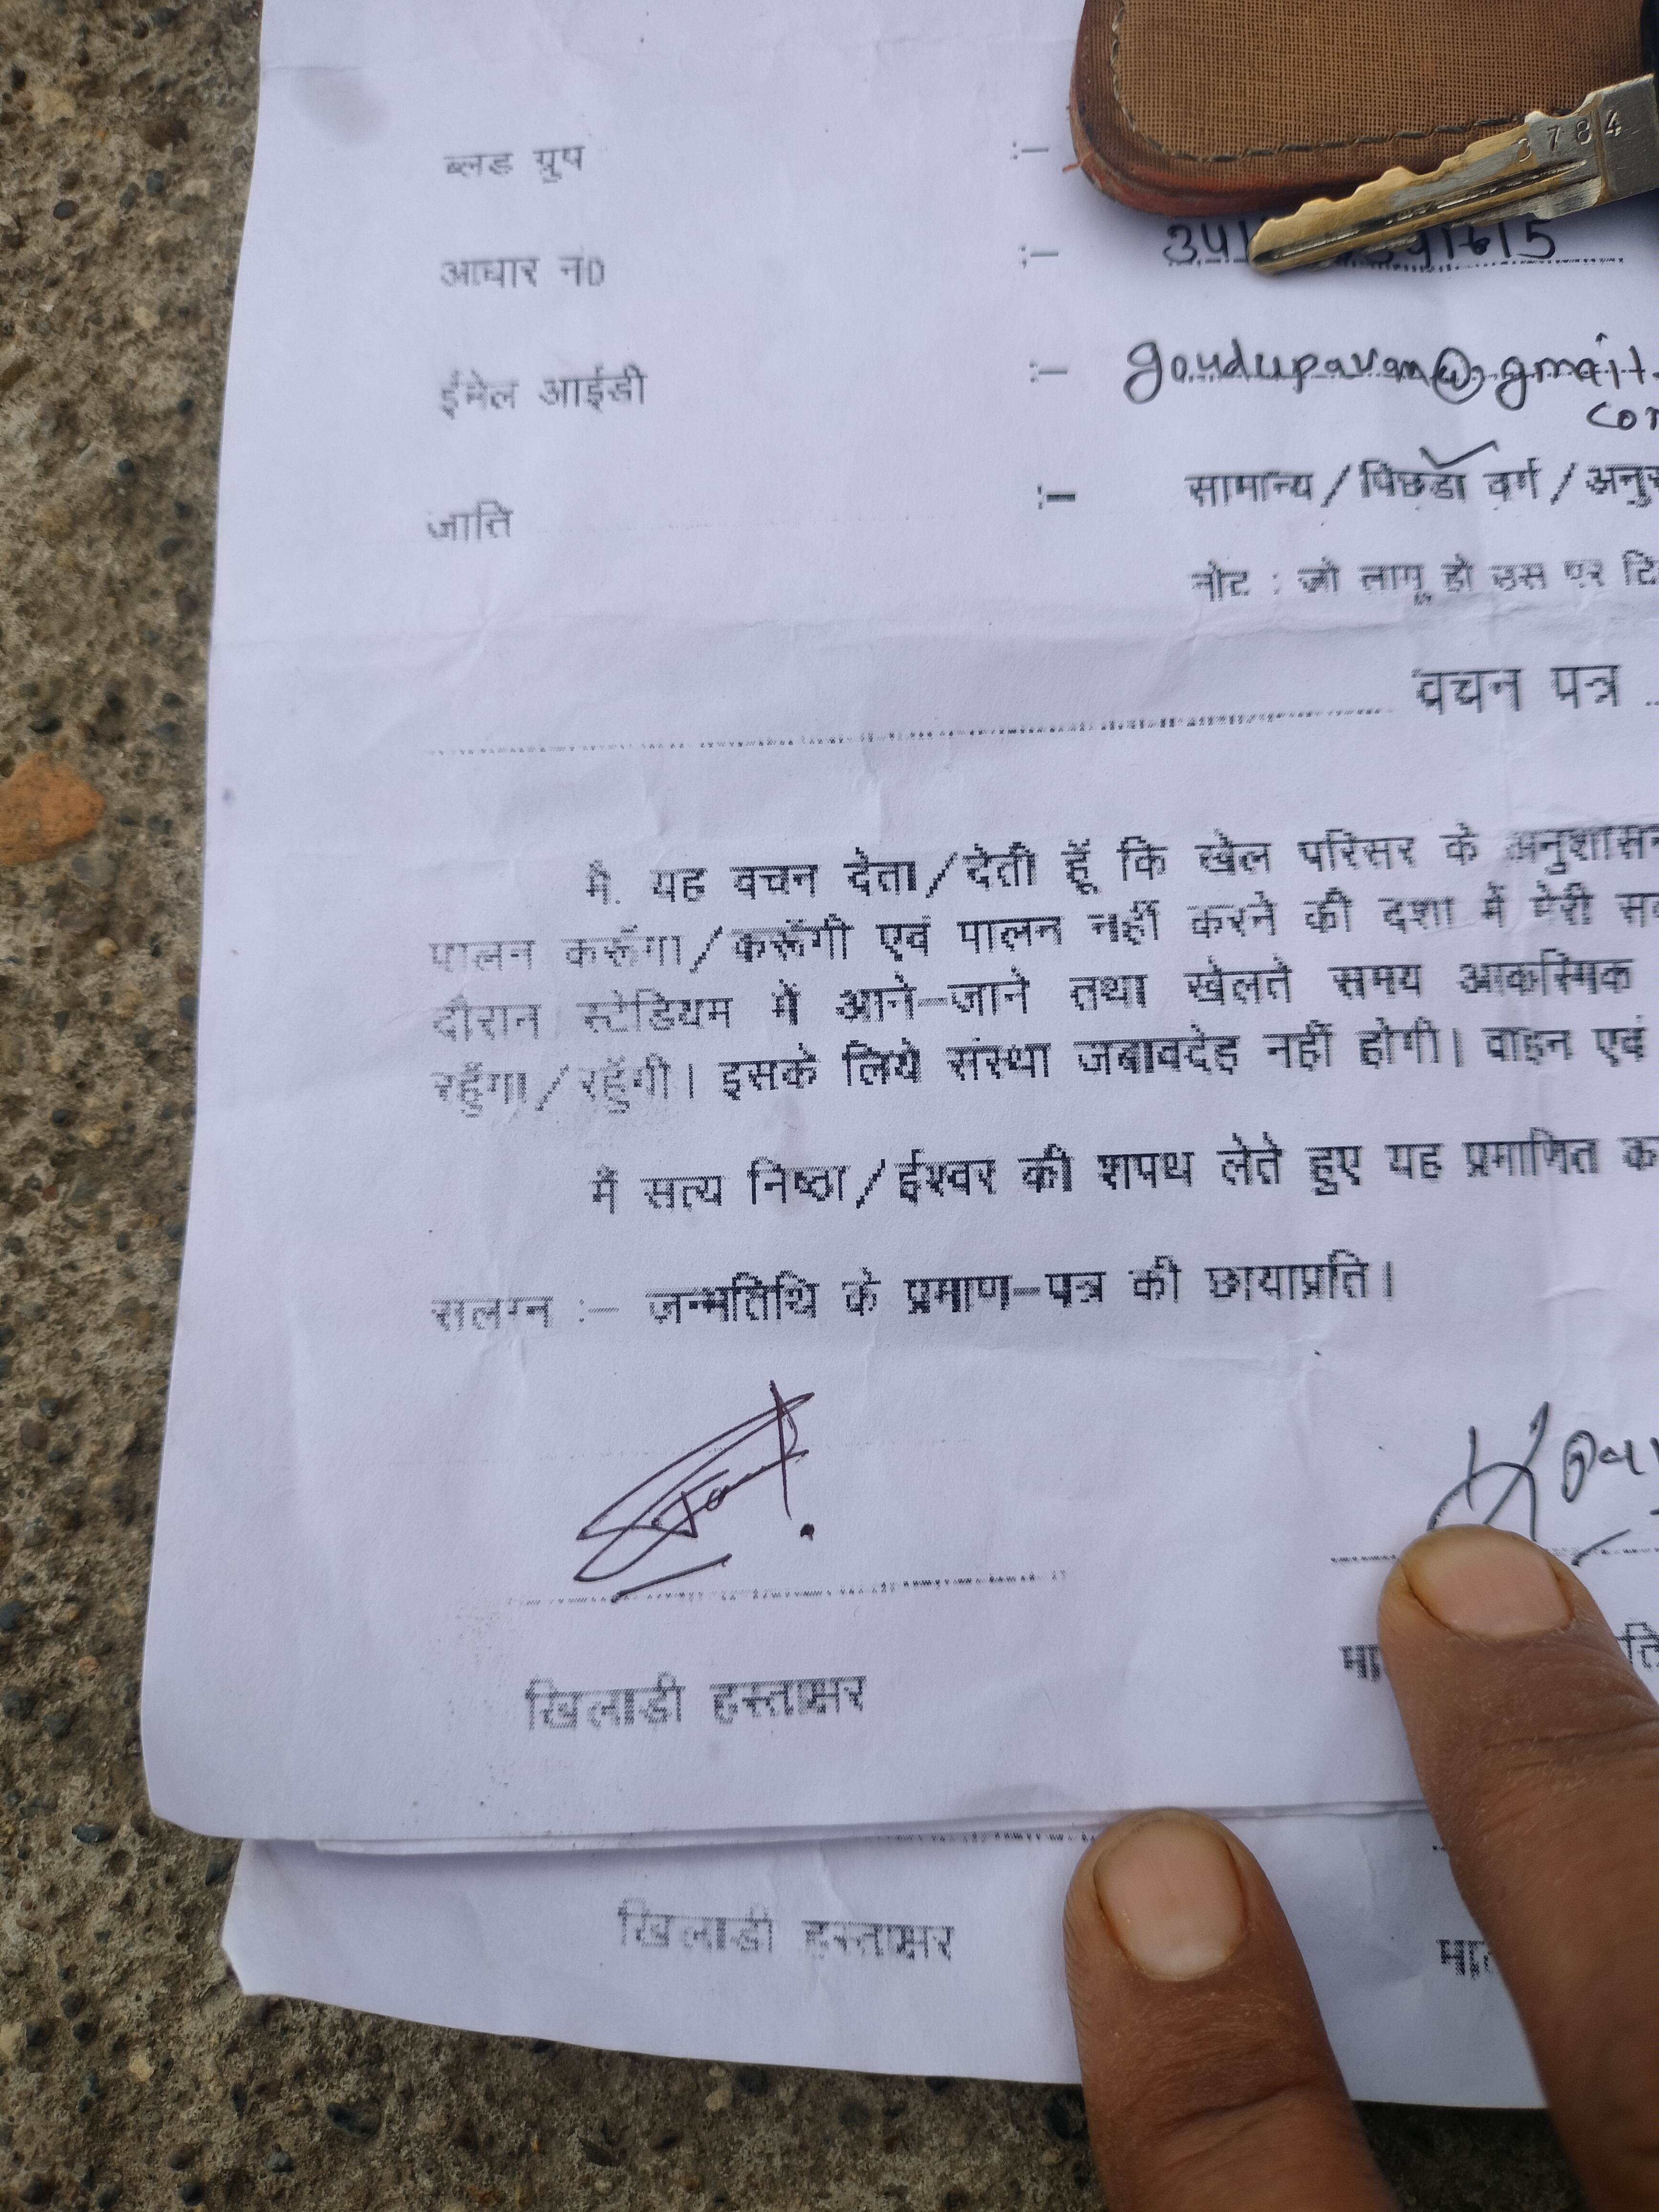 ब्लड ग्रुप :—
3784
आधार नं0 :—
ईमेल आईडी :— goudupavan@gmail.
जाति :— सामान्य/पिछडा वर्ग/
नोट : जो लागू हो उस पर
वचन पत्र
मै. यह वचन देता/देती हूँ कि खेल परिसर के अनुशासन
पालन करूँगा/करूँगी एवं पालन नहीं करने की दशा में मेरी
दौरान स्टेडियम में आने—जाने तथा खेलते समय आकस्मिक
रहूँगा/रहूँगी। इसके लिये संस्था जबावदेह नहीं होगी। वाहन एवं
मैं सत्य निष्ठा/ईश्वर की शपथ लेते हुए यह प्रमाणित
सलग्न :— जन्मतिथि के प्रमाण—पत्र की छायाप्रति।
खिलाडी हस्ताक्षर
खिलाडी हस्ताक्षर